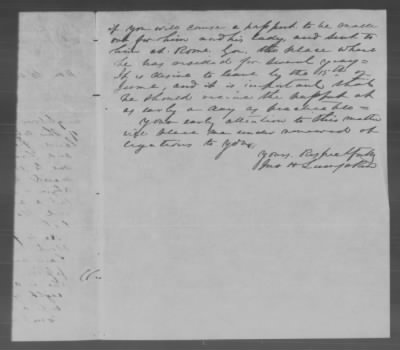 if you will cause a passport to be made
out for him and his lady, and sent to
him at Rome Geo. the place where
he has resided for several years
It is desire to leave by the 15th of
June, and it is important that
he should receive the passport at
as early a day as practicable =
Your early attention to this matter
will place me under renewed ob
ligations to you,
Yours Respectfully
Jno H Lumpkin